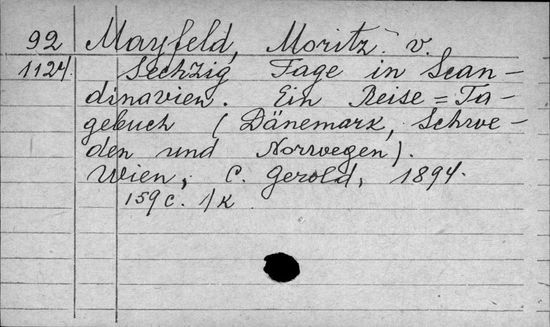 92 Mayfeld, Moritz v.
1124. Sechzig Tage in Scan-
dinavien. Ein Reise=Ta-
gebuch (Dänemark, Schwe-
den und Norwegen).
Wien, C. Gerold, 1894.
159 c. 1/K